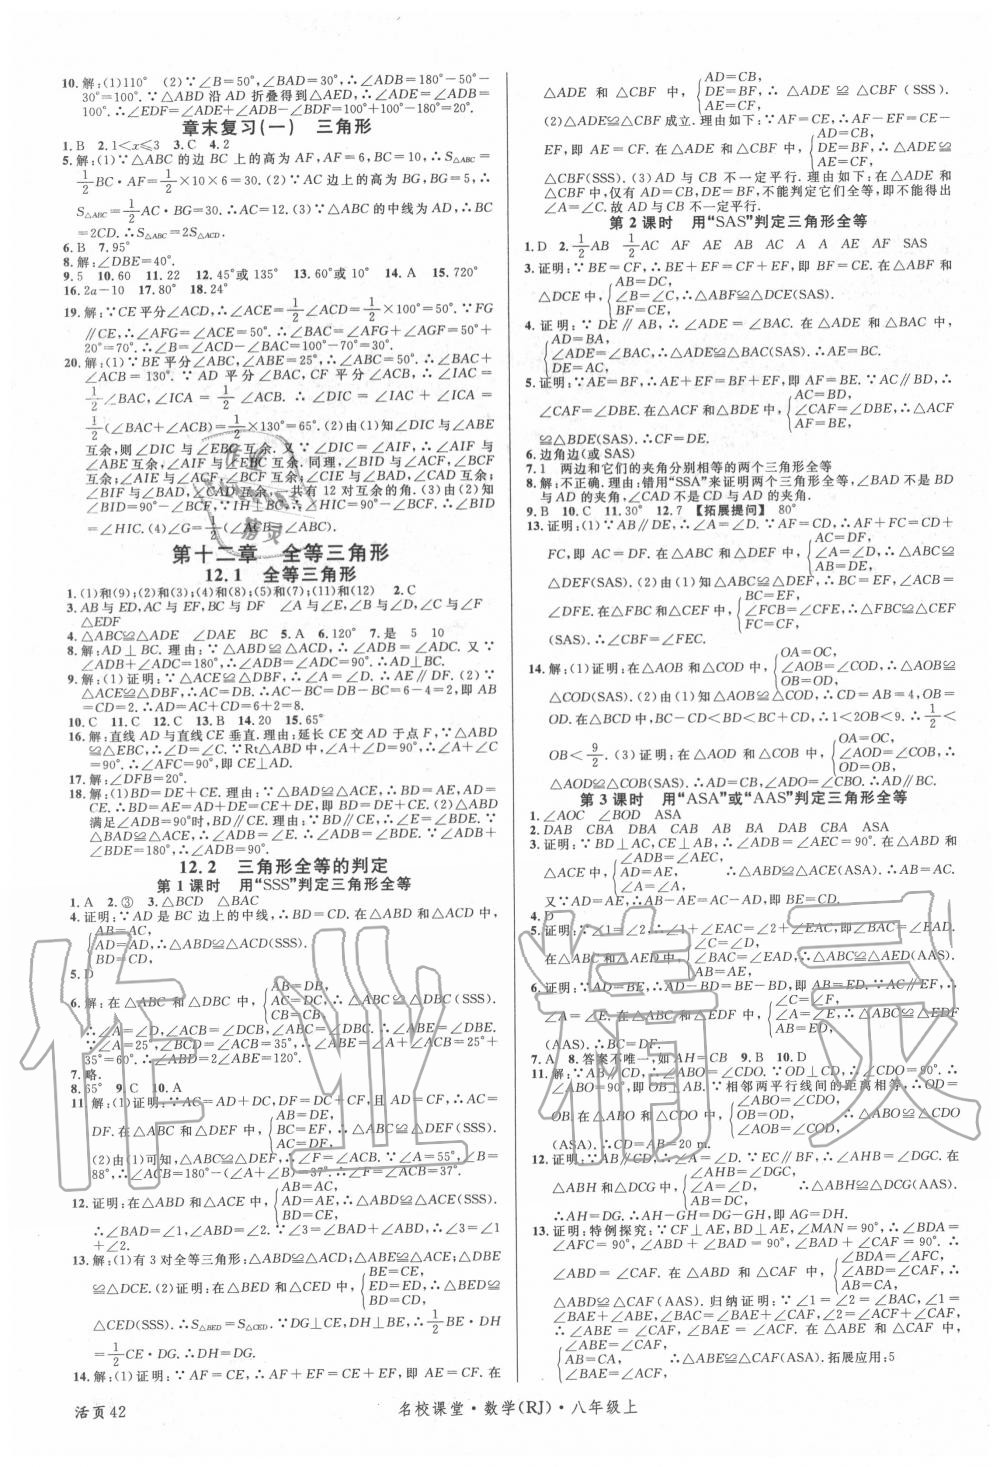 10. 解:(1)110° (2)∵∠B=50°,∠BAD=30°,∴∠ADB=180°-50°-
30°=100°. ∵△ABD 沿 AD 折叠得到△AED,∴∠ADE=∠ADB=
100°. ∴∠EDF=∠ADE+∠ADB-∠BDF=100°+100°-180°=20°.
章末复习(一) 三角形
1. B 2. 1<x≤3 3. C 4. 2
5. 解:(1)∵△ABC 的边 BC 上的高为 AF,AF=6,BC=10,∴S△ABC=
1/2 BC·AF=1/2×10×6=30. (2)∵AC 边上的高为 BG,BG=5,∴
S△ABC=1/2 AC·BG=30. ∴AC=12. (3)∵△ABC 的中线为 AD,∴BC
=2CD. ∴S△ABC=2S△ACD.
6. B 7. 95°
8. 解:∠DBE=40°.
9. 5 10. 60 11. 22 12. 45°或 135° 13. 60°或 10° 14. A 15. 720°
16. 2a-10 17. 80° 18. 24°
19. 解:∵CE 平分∠ACD,∴∠ACE=1/2∠ACD=1/2×100°=50°. ∵FG
∥CE,∴∠AFG=∠ACE=50°. ∴∠BAC=∠AFG+∠AGF=50°+
20°=70°. ∴∠B=∠ACD-∠BAC=100°-70°=30°.
20. 解:(1)∵BE 平分∠ABC,∠ABE=25°,∴∠ABC=50°. ∴∠BAC
+∠ACB=130°. ∵AD 平分∠BAC,CF 平分∠ACB,∴∠IAC=
1/2∠BAC,∠ICA=1/2∠ACB. ∴∠DIC=∠IAC+∠ICA=
1/2(∠BAC+∠ACB)=1/2×130°=65°. (2)由(1)知∠DIC 与∠ABE
互余,则∠DIC 与∠EBC 互余. 又∵∠DIC=∠AIF,∴∠AIF 与∠
ABE 互余,∠AIF 与∠EBC 互余. 同理,∠BID 与∠ACF,∠BCF
互余;∠AIE 与∠ACF,∠BCF 互余;∠BIF 与∠BAD,∠CAD 互余;
∠EIC 与∠BAD,∠CAD 互余. 共有 12 对互余的角. (3)由(2)知
∠BID=90°-∠BCF,∵IH⊥BC,∴∠HIC=90°-∠BCF. ∴∠BID
=∠HIC. (4)∠G=1/2(∠ACB-∠ABC).
第十二章 全等三角形
12.1 全等三角形
1. (1)和(9);(2)和(3);(4)和(8);(5)和(7);(11)和(12) 2. C
3. AB 与 ED,AC 与 EF,BC 与 DF ∠A 与∠E,∠B 与∠D,∠C 与∠F
△EDF
4. △ABC≌△ADE ∠DAE BC 5. A 6. 120° 7. 是 5 10
8. 解:AD⊥BC. 理由:∵△ABD≌△ACD,∴∠ADB=∠ADC. 又∵
∠ADB+∠ADC=180°,∴∠ADB=∠ADC=90°. ∴AD⊥BC.
9. 解:(1)证明:∵△ACE≌△DBF,∴∠A=∠D. ∴AE∥DF. (2)∵
△ACE≌△DBF,∴AC=DB. ∴AC-BC=DB-BC=6-4=2,即 AB
=CD=2. ∴AD=AC+CD=6+2=8.
10. C 11. C 12. C 13. B 14. 20 15. 65°
16. 解:直线 AD 与直线 CE 垂直. 理由:延长 CE 交 AD 于点 F,∵△ABD
≌△EBC,∴∠D=∠C. ∵Rt△ABD 中,∠A+∠D=90°,∴∠A+∠C
=90°. ∴∠AFC=90°,即 CE⊥AD.
17. 解:∠DFB=20°.
18. 解:(1)BD=DE+CE. 理由:∵△BAD≌△ACE,∴BD=AE,AD=
CE. ∴BD=AE=AD+DE=CE+DE,即 BD=DE+CE. (2)△ABD
满足∠ADB=90°时,BD∥CE. 理由:∵BD∥CE,∴∠E=∠BDE. ∵
△BAD≌△ACE,∴∠ADB=∠E. ∴∠ADB=∠BDE. 又∵∠ADB+
∠BDE=180°,∴∠ADB=90°.
12.2 三角形全等的判定
第 1 课时 用“SSS”判定三角形全等
1. A 2. ③ 3. △BCD △BAC
4. 证明:∵AD 是 BC 边上的中线,∴BD=CD. 在△ABD 和△ACD 中,
AB=AC,
AD=AD,∴△ABD≌△ACD(SSS).
BD=CD,
5. D
6. 解:在△ABC 和△DBC 中,
AB=DB,
AC=DC,∴△ABC≌△DBC(SSS).
CB=CB,
∴∠A=∠D,∠ACB=∠DCB,∠ABC=∠DBC. ∴∠ABE=∠DBE.
∵∠A=25°,∠DCB=∠ACB=35°,∴∠ABE=∠A+∠ACB=25°+
35°=60°. ∴∠ABD=2∠ABE=120°.
7. 略.
8. 65° 9. C 10. A
11. 解:(1)证明:∵AC=AD+DC,DF=DC+CF,且 AD=CF,∴AC=
DF. 在△ABC 和△DEF 中,
AB=DE,
BC=EF,∴△ABC≌△DEF(SSS).
AC=DF,
(2)由(1)可知,△ABC≌△DEF,∴∠F=∠ACB. ∵∠A=55°,∠B=
88°,∴∠ACB=180°-(∠A+∠B)=37°. ∴∠F=∠ACB=37°.
12. 证明:在△ABD 和△ACE 中,
AB=AC,
AD=AE,∴△ABD≌△ACE(SSS).
BD=CE,
∴∠BAD=∠1,∠ABD=∠2. ∵∠3=∠BAD+∠ABD,∴∠3=∠1
+∠2.
13. 解:(1)有 3 对全等三角形:△ABD≌△ACD;△ABE≌△ACE;△DBE
≌△DCE. (2)证明:在△BED 和△CED 中,
BE=CE,
ED=ED,∴△BED≌
BD=CD,
△CED(SSS). ∴S△BED=S△CED. ∵DG⊥CE,DH⊥BE,∴1/2 BE·DH=
1/2 CE·DG. ∴DH=DG.
14. 解:(1)证明:∵AF=CE,∴AF+EF=CE+EF,即 AE=CF. 在
△ADE 和△CBF 中,
AD=CB,
DE=BF,∴△ADE≌△CBF(SSS).
AE=CF,
(2)△ADE≌△CBF 成立. 理由如下:∵AF=CE,∴AF-EF=CE-
EF,即 AE=CF. 在△ADE 和△CBF 中,
AD=CB,
DE=BF,∴△ADE≌
AE=CF,
△CBF(SSS). (3)AD 与 CB 不一定平行. 理由如下:在△ADE 和
△CBF 中,仅有 AD=CB,DE=BF,不能判定它们全等,不能得出
∠A=∠C. 故 AD 与 CB 不一定平行.
第 2 课时 用“SAS”判定三角形全等
1. D 2. 1/2 AB 1/2 AC AF AE AB AC A A AE AF SAS
3. 证明:∵BE=CF,∴BE+EF=CF+EF,即 BF=CE. 在△ABF 和
△DCE 中,
AB=DC,
∠B=∠C,∴△ABF≌△DCE(SAS).
BF=CE,
4. 证明:∵DE∥AB,∴∠ADE=∠BAC. 在△ADE 和△BAC 中,
AD=BA,
∠ADE=∠BAC,∴△ADE≌△BAC(SAS). ∴AE=BC.
DE=AC,
5. 证明:∵AE=BF,∴AE+EF=BF+EF,即 AF=BE. ∵AC∥BD,∴
∠CAF=∠DBE. 在△ACF 和△BDE 中,
AC=BD,
∠CAF=∠DBE,∴△ACF
AF=BE,
≌△BDE(SAS). ∴CF=DE.
6. 边角边(或 SAS)
7. 1 两边和它们的夹角分别相等的两个三角形全等
8. 解:不正确. 理由:错用“SSA”来证明两个三角形全等,∠BAD 不是 BD
与 AD 的夹角,∠CAD 不是 CD 与 AD 的夹角.
9. B 10. C 11. 30° 12. 7 【拓展提问】 80°
13. 证明:(1)∵AB∥DE,∴∠A=∠D. ∵AF=CD,∴AF+FC=CD+
FC,即 AC=DF. 在△ABC 和△DEF 中,
AC=DF,
∠A=∠D,∴△ABC
AB=DE,
≌△DEF(SAS). (2)∵△ABC≌△DEF(SAS),∴BC=EF,∠ACB
=∠DFE. 在△FBC 和△CEF 中,
BC=EF,
∠FCB=∠CFE,∴△FBC≌△CEF
FC=CF,
(SAS). ∴∠CBF=∠FEC.
14. 解:(1)证明:在△AOB 和△COD 中,
OA=OC,
∠AOB=∠COD,∴△AOB≌
OB=OD,
△COD(SAS). (2)由(1)知△AOB≌△COD,∴CD=AB=4,OB=
OD. 在△BCD 中,BC-CD<BD<BC+CD,∴1<2OB<9. ∴1/2<
OB<9/2. (3)证明:在△AOD 和△COB 中,
OA=OC,
∠AOD=∠COB,∴
OD=OB,
△AOD≌△COB(SAS). ∴AD=CB,∠ADO=∠CBO. ∴AD∥BC.
第 3 课时 用“ASA”或“AAS”判定三角形全等
1. ∠AOC ∠BOD ASA
2. DAB CBA DBA CAB AB BA DAB CBA ASA
3. 证明:∵BD⊥AC,CE⊥AB,∴∠ADB=∠AEC=90°. 在△ADB 和
△AEC 中,
∠ADB=∠AEC,
AD=AE,
∠A=∠A,
∴△ADB≌△AEC(ASA). ∴AB=AC.
又∵AD=AE,∴AB-AE=AC-AD,即 BE=CD.
4. D
5. 证明:∵∠1=∠2,∴∠1+∠EAC=∠2+∠EAC,即∠BAC=∠EAD.
在△ABC 和△AED 中,
6. 证明:∵AD=BE,∴AD-BD=BE-BD,即 AB=ED. ∵AC∥EF,∴
∠A=∠E. 在△ABC 和△EDF 中,
∠C=∠F,
∠A=∠E,∴△ABC≌△EDF
(AAS). ∴BC=DF.
7. A 8. 答案不唯一,如 AH=CB 9. B 10. D
11. 解:∵AB∥CD,∴∠ABO=∠CDO. ∵OD⊥CD,∴∠CDO=90°. ∴
∠ABO=90°,即 OB⊥AB. ∵相邻两平行线间的距离相等,∴OD=
OB. 在△ABO 和△CDO 中,
∠ABO=∠CDO,
OB=OD,∴△ABO≌△CDO
(ASA). ∴CD=AB=20 m.
12. 证明:∵AB∥CD,∴∠A=∠D. ∵EC∥BF,∴∠AHB=∠DGC. 在
△ABH 和△DCG 中,
∠AHB=∠DGC,
∠A=∠D,∴△ABH≌△DCG(AAS).
AB=DC,
∴AH=DG. ∴AH-GH=DG-GH,即 AG=DH.
13. 证明:特例探究:∵CF⊥AE,BD⊥AE,∠MAN=90°,∴∠BDA=
∠AFC=90°,∠ABD+∠BAD=90°,∠BAD+∠CAF=90°. ∴
∠ABD=∠CAF. 在△ABD 和△CAF 中,
∠BDA=∠AFC,
∠ABD=∠CAF,∴
AB=CA,
△ABD≌△CAF(AAS). 归纳证明:∵∠1=∠2=∠BAC,∠1=
∠BAE+∠ABE,∠BAC=∠BAE+∠CAF,∠2=∠ACF+∠CAF,
∴∠ABE=∠CAF,∠BAE=∠ACF. 在△ABE 和△CAF 中,
∠ABE=∠CAF,
AB=CA,
∠BAE=∠ACF,
∴△ABE≌△CAF(ASA). 拓展应用:5
活页 42
名校课堂·数学(RJ)·八年级上
作业精灵